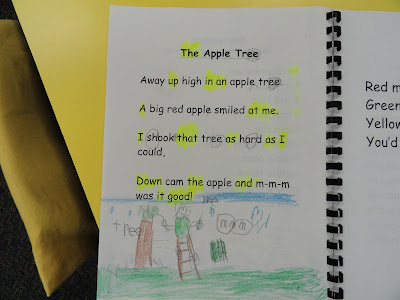 The Apple Tree
Away up high in an apple tree
A big red apple smiled at me.
I shook that tree as hard as I
could,
Down cam the apple and m-m-m
was it good!
me
tree
mmm
Red m
Green
Yellow
You'd